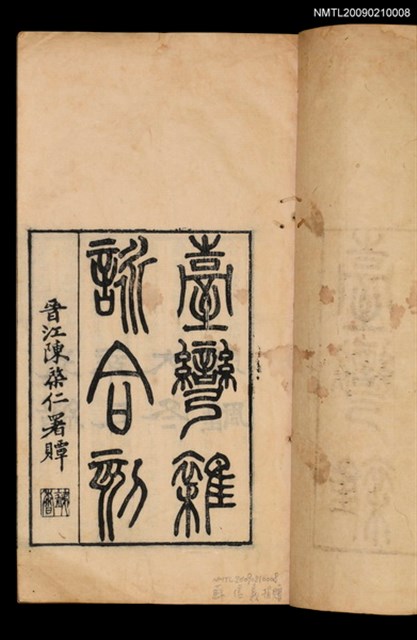 NMTL20090210008
臺灣雜
詠合刻
晉江陳棨仁署䞈
NMTL20090210008